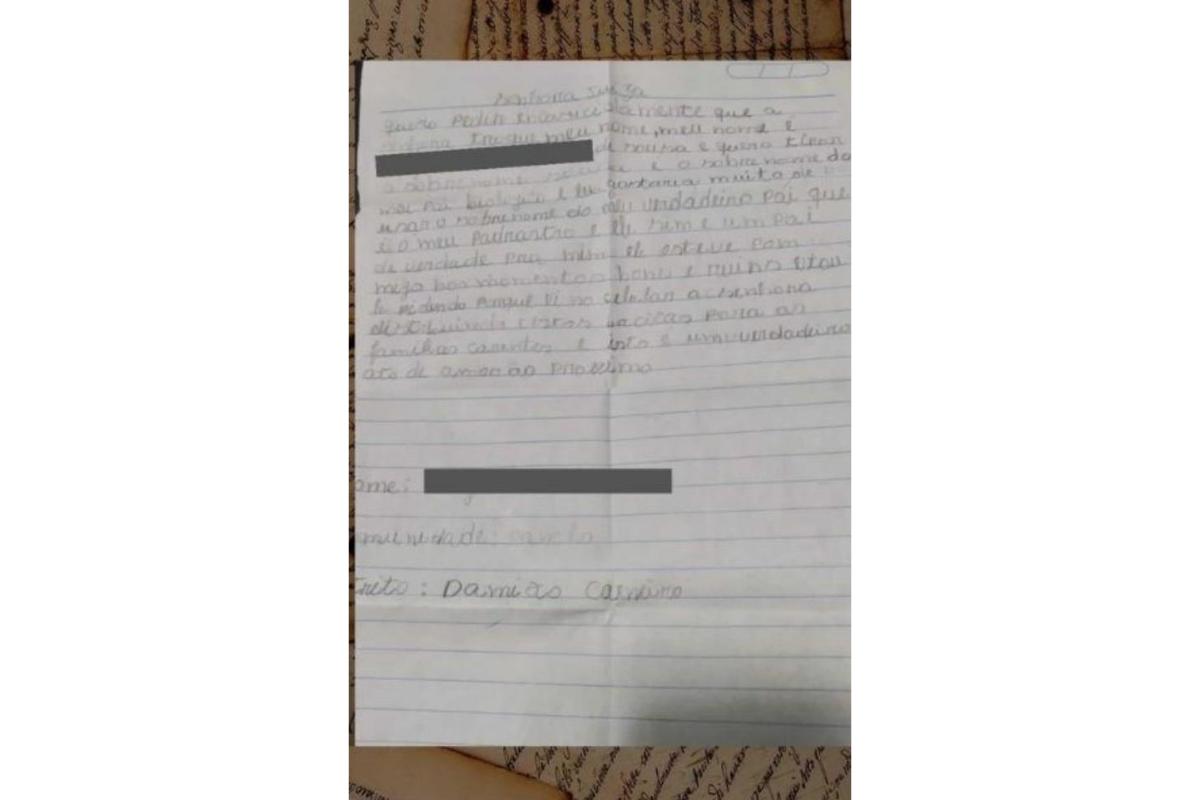 Senhora Juiza
quero Pedir encarecidamente que a
senhora troque meu nome, meu nome é
de sousa e quero tirar
o sobrenome e o sobrenome do
meu Pai biologico e eu gostaria muito de
usar o sobrenome do meu verdadeiro Pai que
é o meu Padrastro e ele sim e um Pai
de verdade pra mim ele esteve com
nos momentos bons e ruins estou
te pedindo Porque vi no celular a senhora
cestas Para as
familias carentes e isto é um verdadeiro
ato de amor ao Proximo
ome:
munidade:
trito: Damião Carneiro